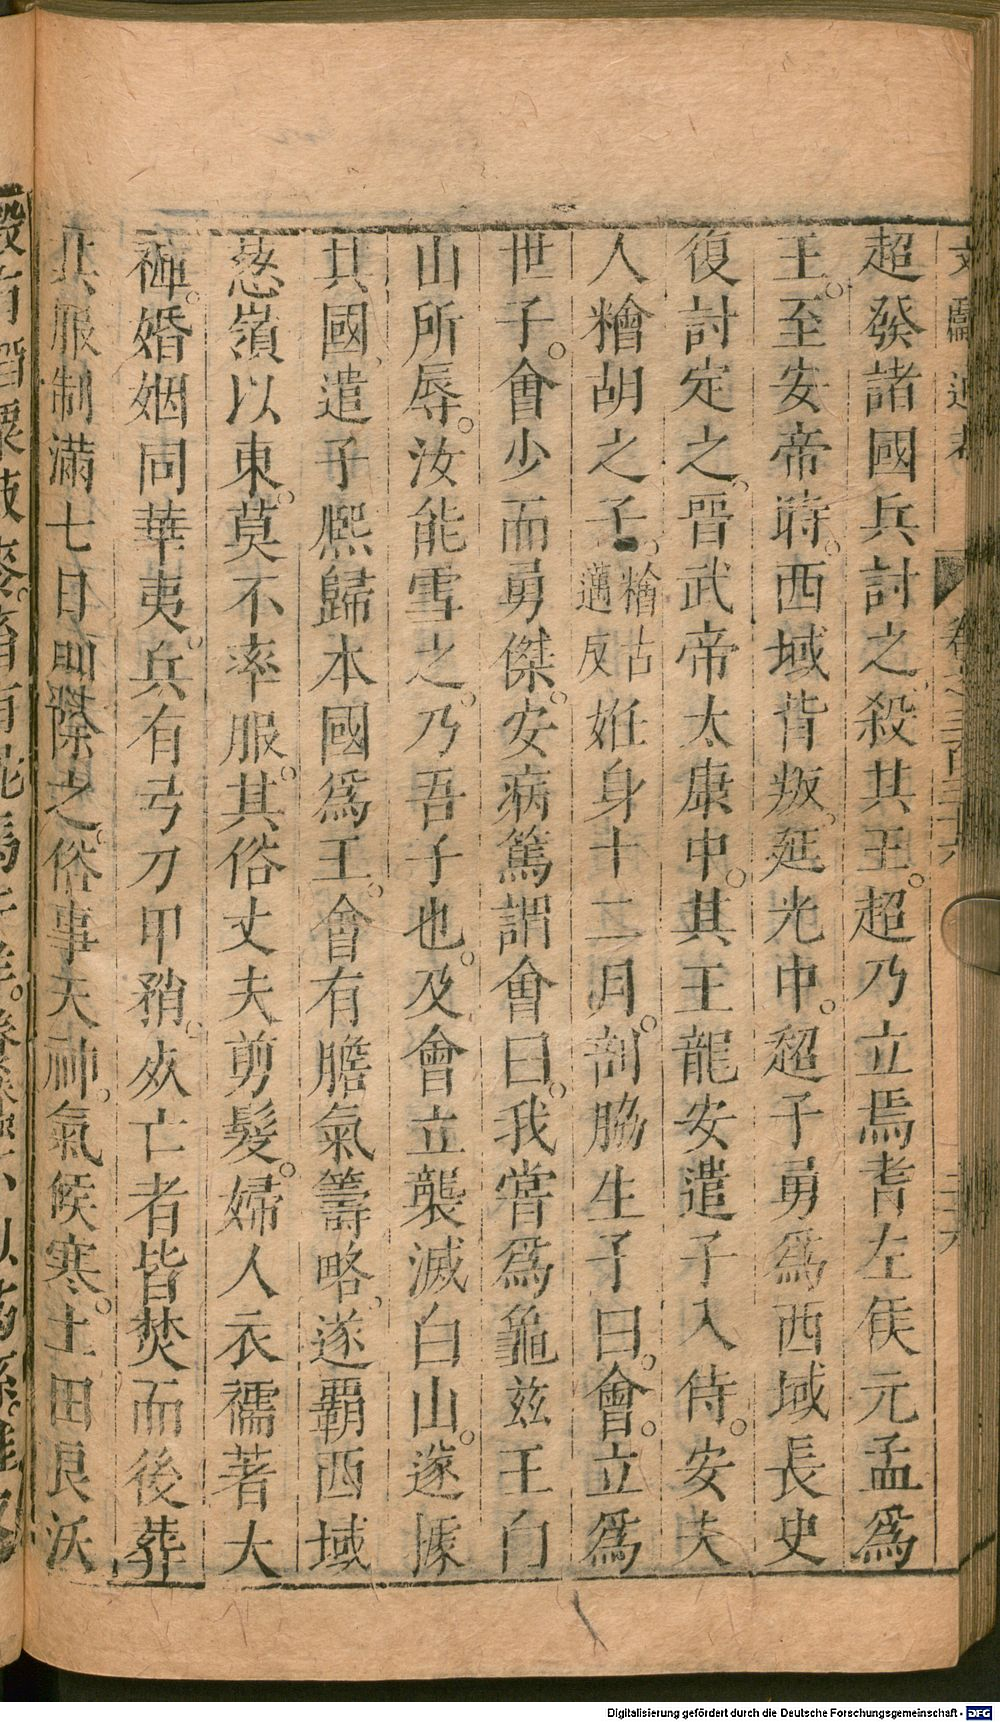 文獻通考 卷之三百三十六 三十六
超發諸國兵討之殺其王。超乃立焉耆左侯元孟爲
王。至安帝時。西域背叛、延光中。超子勇爲西域長史
復討定之、晉武帝太康中。其王龍安遣子入侍。安夫
人獪胡之子。獪古邁反姙身十二月。剖脇生子曰。會。立爲
世子。會少而勇傑。安病篤謂會曰。我嘗爲龜兹王白
山所辱。汝能雪之。乃吾子也。及會立襲滅白山。遂據
其國、遣子熈歸本國爲王。會有膽氣籌略、遂覇西域
葱嶺以東。莫不率服。其俗丈夫剪髮。婦人衣襦著大
褲。婚姻同華夷。兵有弓刀甲矟。死亡者皆焚而後葬
其服制滿七日則除之。俗事天神。氣候寒。土田良沃
Digitalisierung gefördert durch die Deutsche Forschungsgemeinschaft - DFG